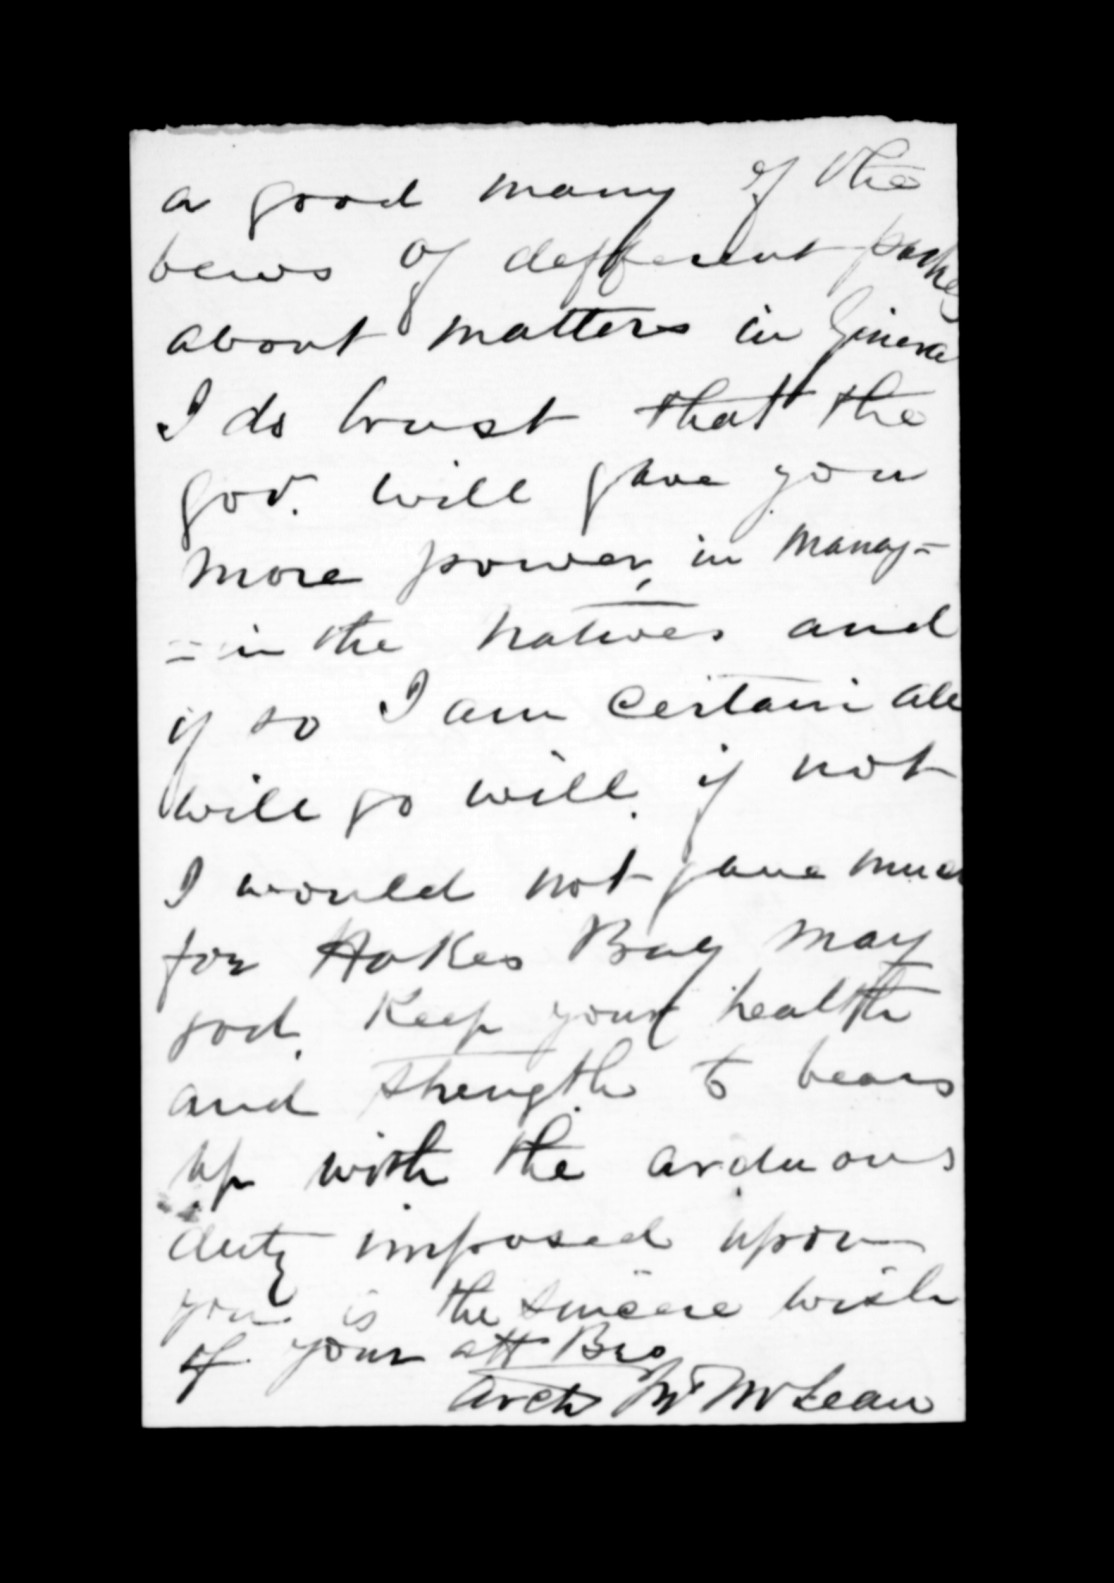 a good many of the
bews of defferent parties
about matters in Ginera
I do trust that the
gov. will gave you
more power, in manag=
=in the natives and
if so I am certain all
will go will. if not
I would not gave much
for Hakes Bay may
god. Keep your health
and strength to bears
up with the arduous
duty imposed upon
you is the sincere wish
of your att Bro
Archd McLean